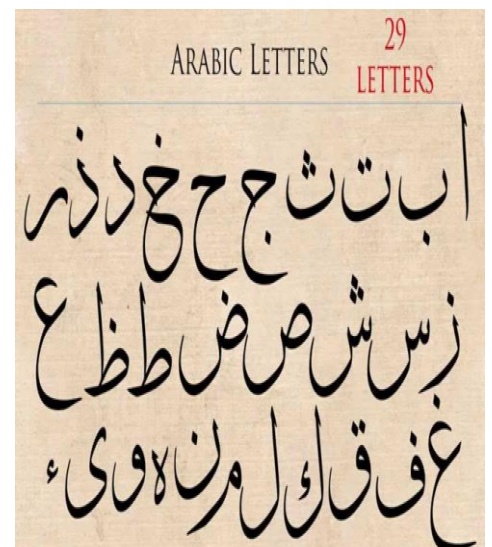 ARABIC LETTERS
29
LETTERS
ا ب ت ث ج ح خ د ذ ر
ز س ش ص ض ط ظ ع
غ ف ق ك ل م ن ه و ی ء